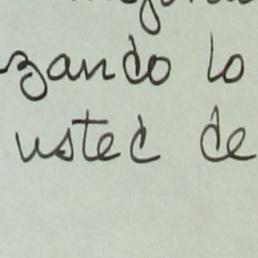 zando lo
usted de